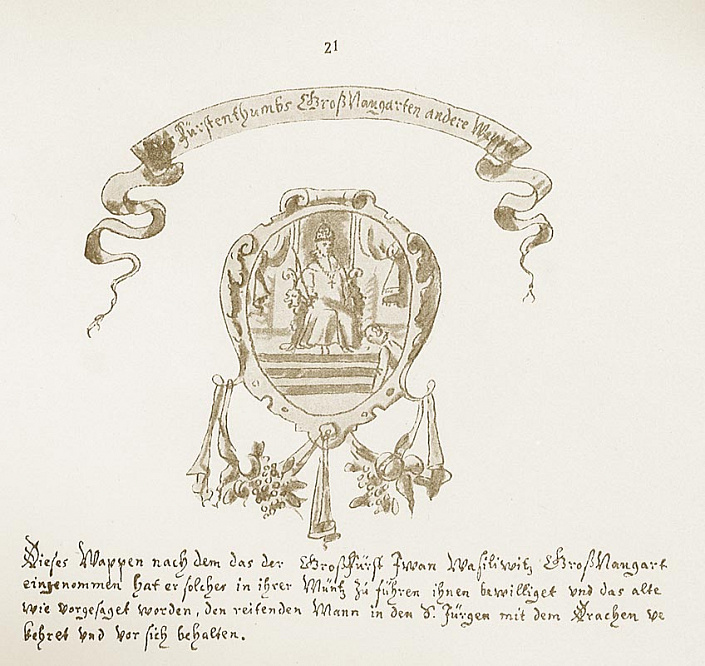 21
Fürstenthumbs Groß Naugarten andere Wappen
Dieses Wappen nach dem das der Großfürst Iwan Wasiliwitz Groß Naugart
eingenommen hat er solches in ihrer Müntz zu führen ihnen bewilliget vnd das alte
wie vorgesaget worden, den reitenden Mann in den S. Jürgen mit dem Drachen ve
kehret vnd vor sich behalten.